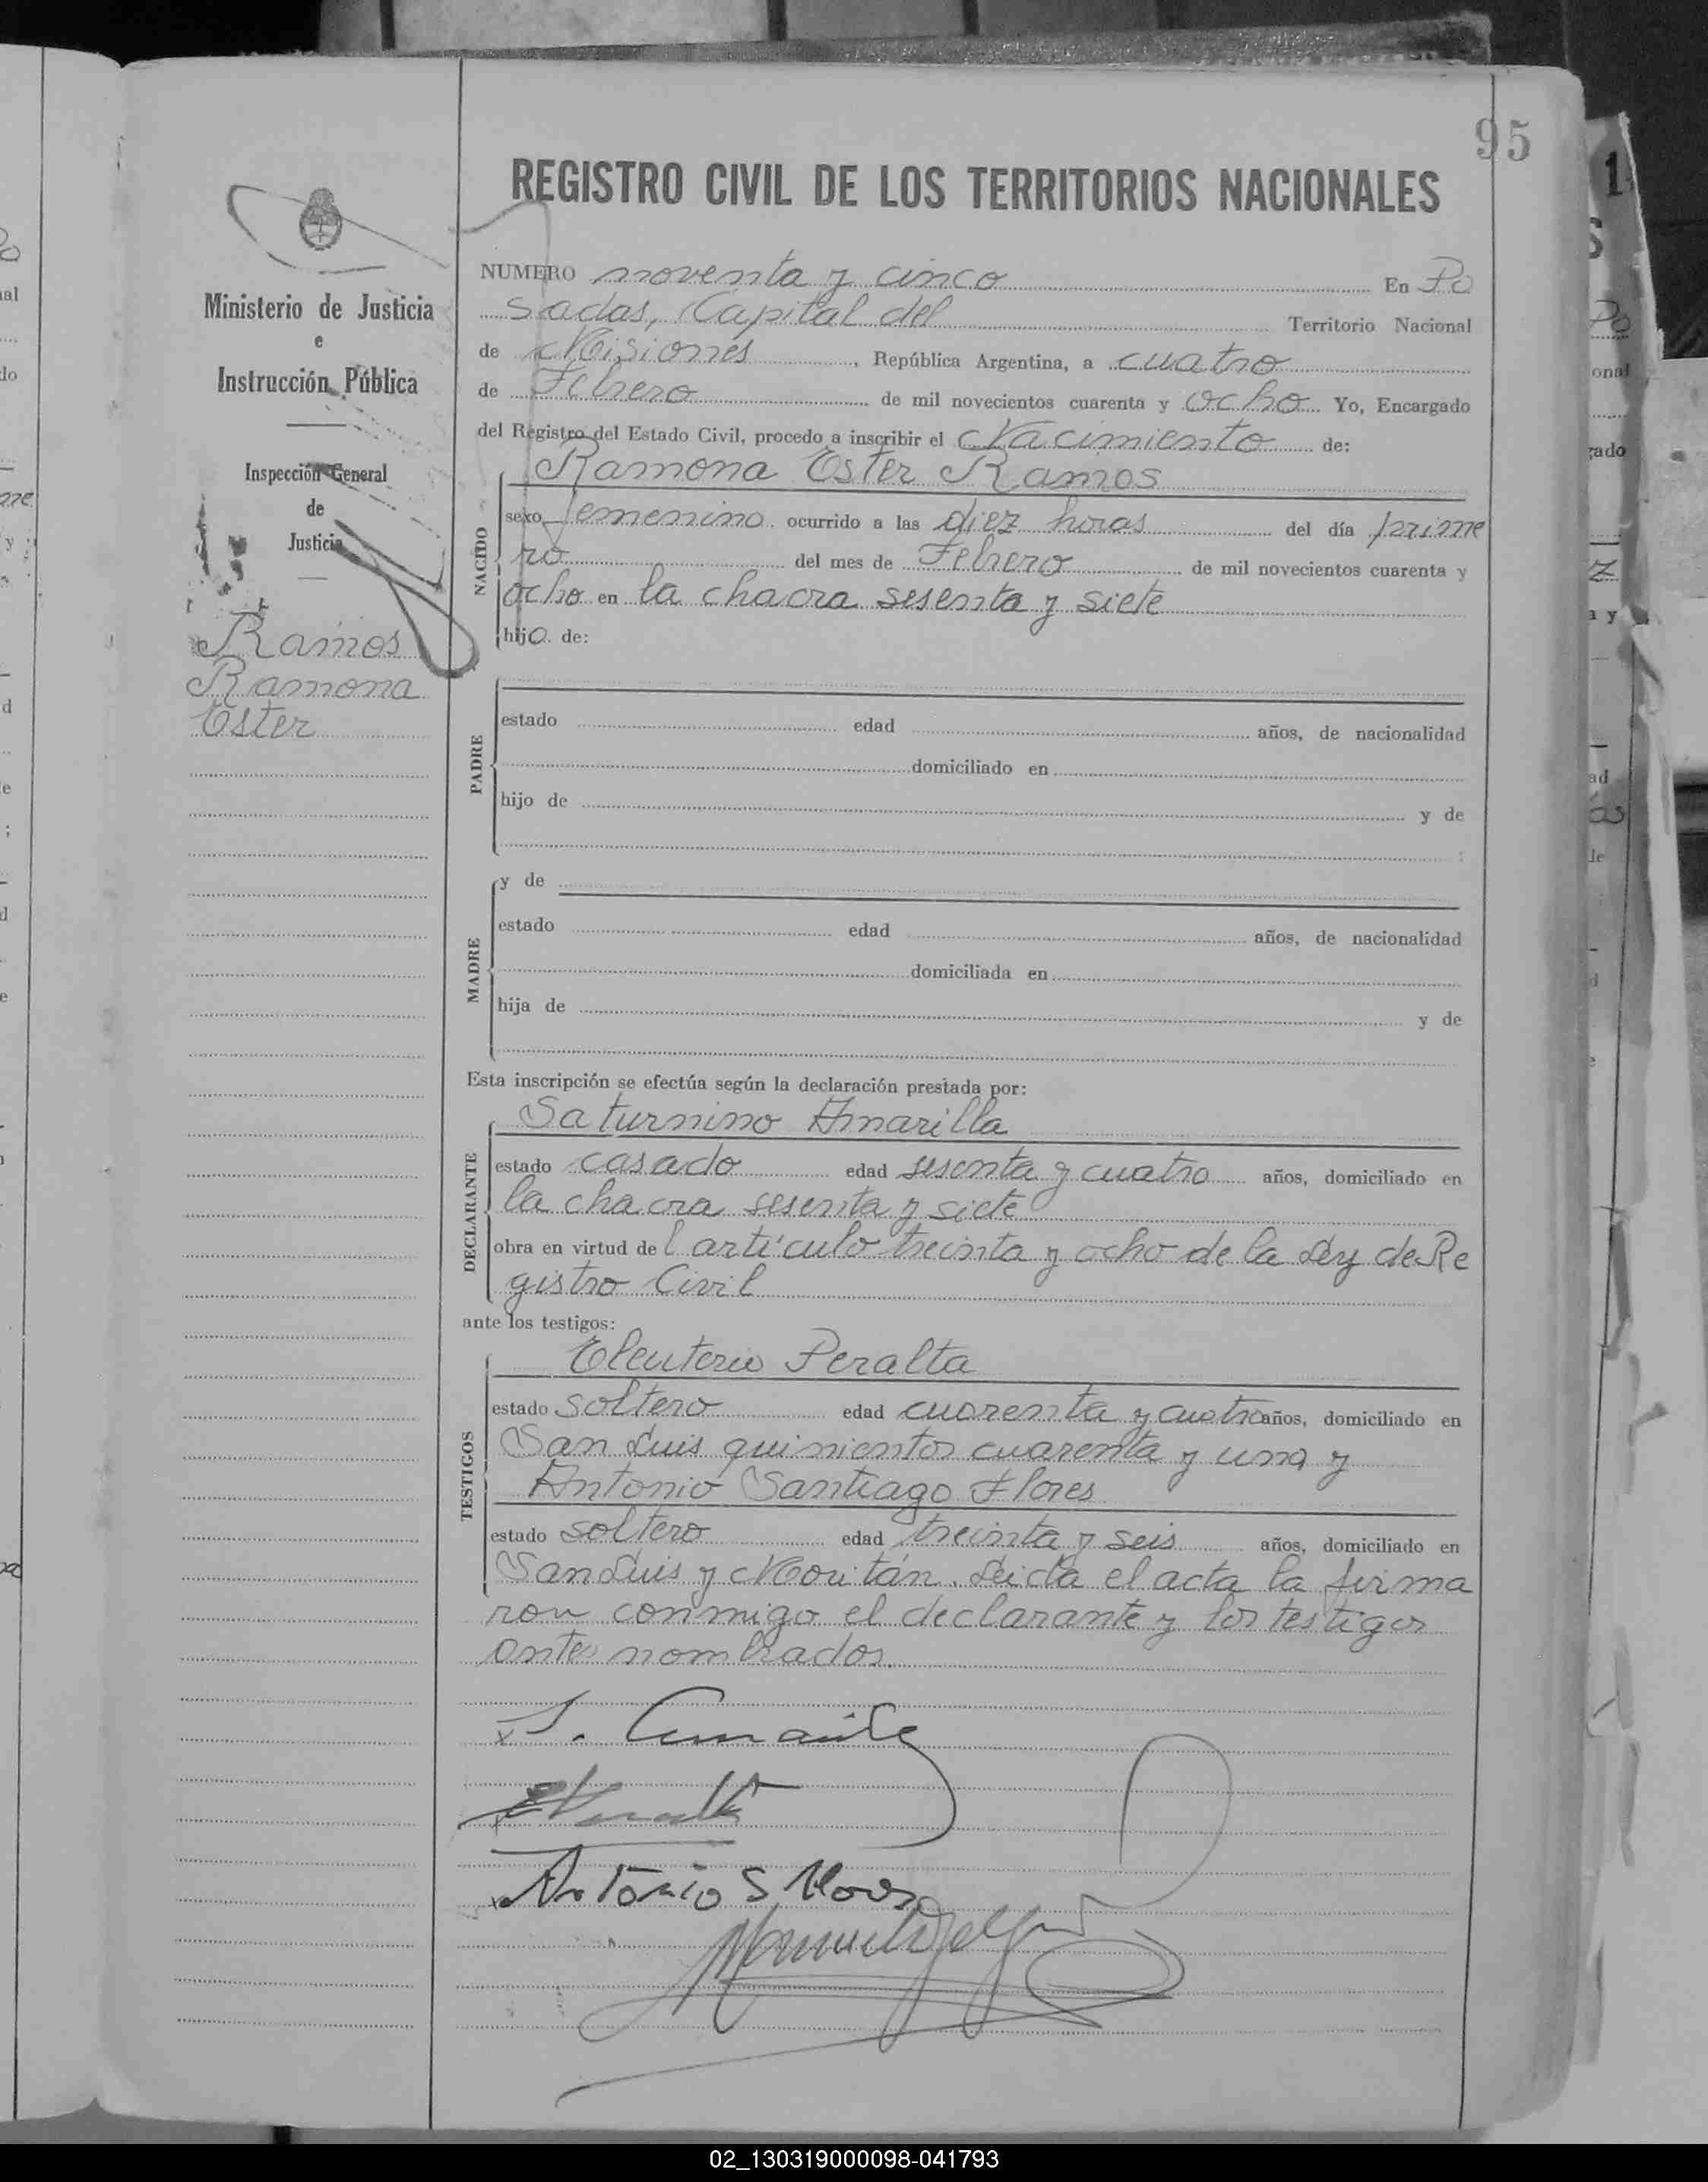 95
REGISTRO CIVIL DE LOS TERRITORIOS NACIONALES
Ministerio de Justicia
e
Instrucción Pública
Inspección General
de
Justicia
Ramos
Ramona
Ester
NUMERO noventa y cinco En Po
sadas, Capital del Territorio Nacional
de Misiones, República Argentina, a cuatro
de Febrero de mil novecientos cuarenta y ocho Yo, Encargado
del Registro del Estado Civil, procedo a inscribir el Nacimiento de:
NACIDO
Ramona Ester Ramos
sexo femenino ocurrido a las diez horas del día prime
ro del mes de Febrero de mil novecientos cuarenta y
ocho en la chacra sesenta y siete
hija de:
PADRE
estado edad años, de nacionalidad
domiciliado en
hijo de y de
;
MADRE
y de
estado edad años, de nacionalidad
domiciliada en
hija de y de
Esta inscripción se efectúa según la declaración prestada por:
DECLARANTE
Saturnino Amarilla
estado casado edad sesenta y cuatro años, domiciliado en
la chacra sesenta y siete
obra en virtud del artículo treinta y ocho de la Ley de Re
gistro Civil
ante los testigos:
TESTIGOS
Eleuterio Peralta
estado soltero edad cuarenta y cuatro años, domiciliado en
San Luis quinientos cuarenta y uno y
Antonio Santiago Flores
estado soltero edad treinta y seis años, domiciliado en
San Luis y Moritán. Leida el acta la firma
ron conmigo el declarante y los testigos
antes nombrados.
Antonio S Flores
02_130319000098-041793